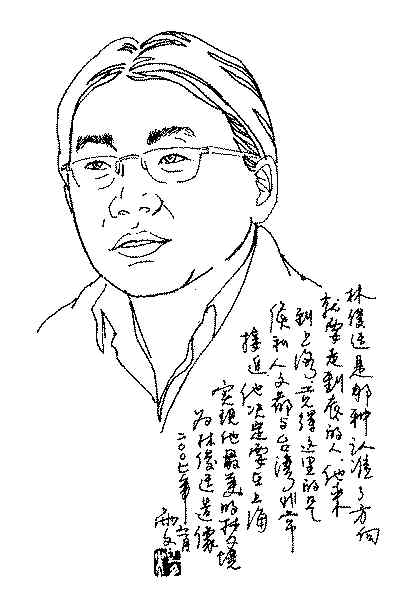 林俊廷是那种认准了方向
就要走到底的人他来
到上海觉得这里的气
候和人文都与台湾非常
接近他决定要在上海
实现他最美的梦境
为林俊廷造像
二〇〇七年 月